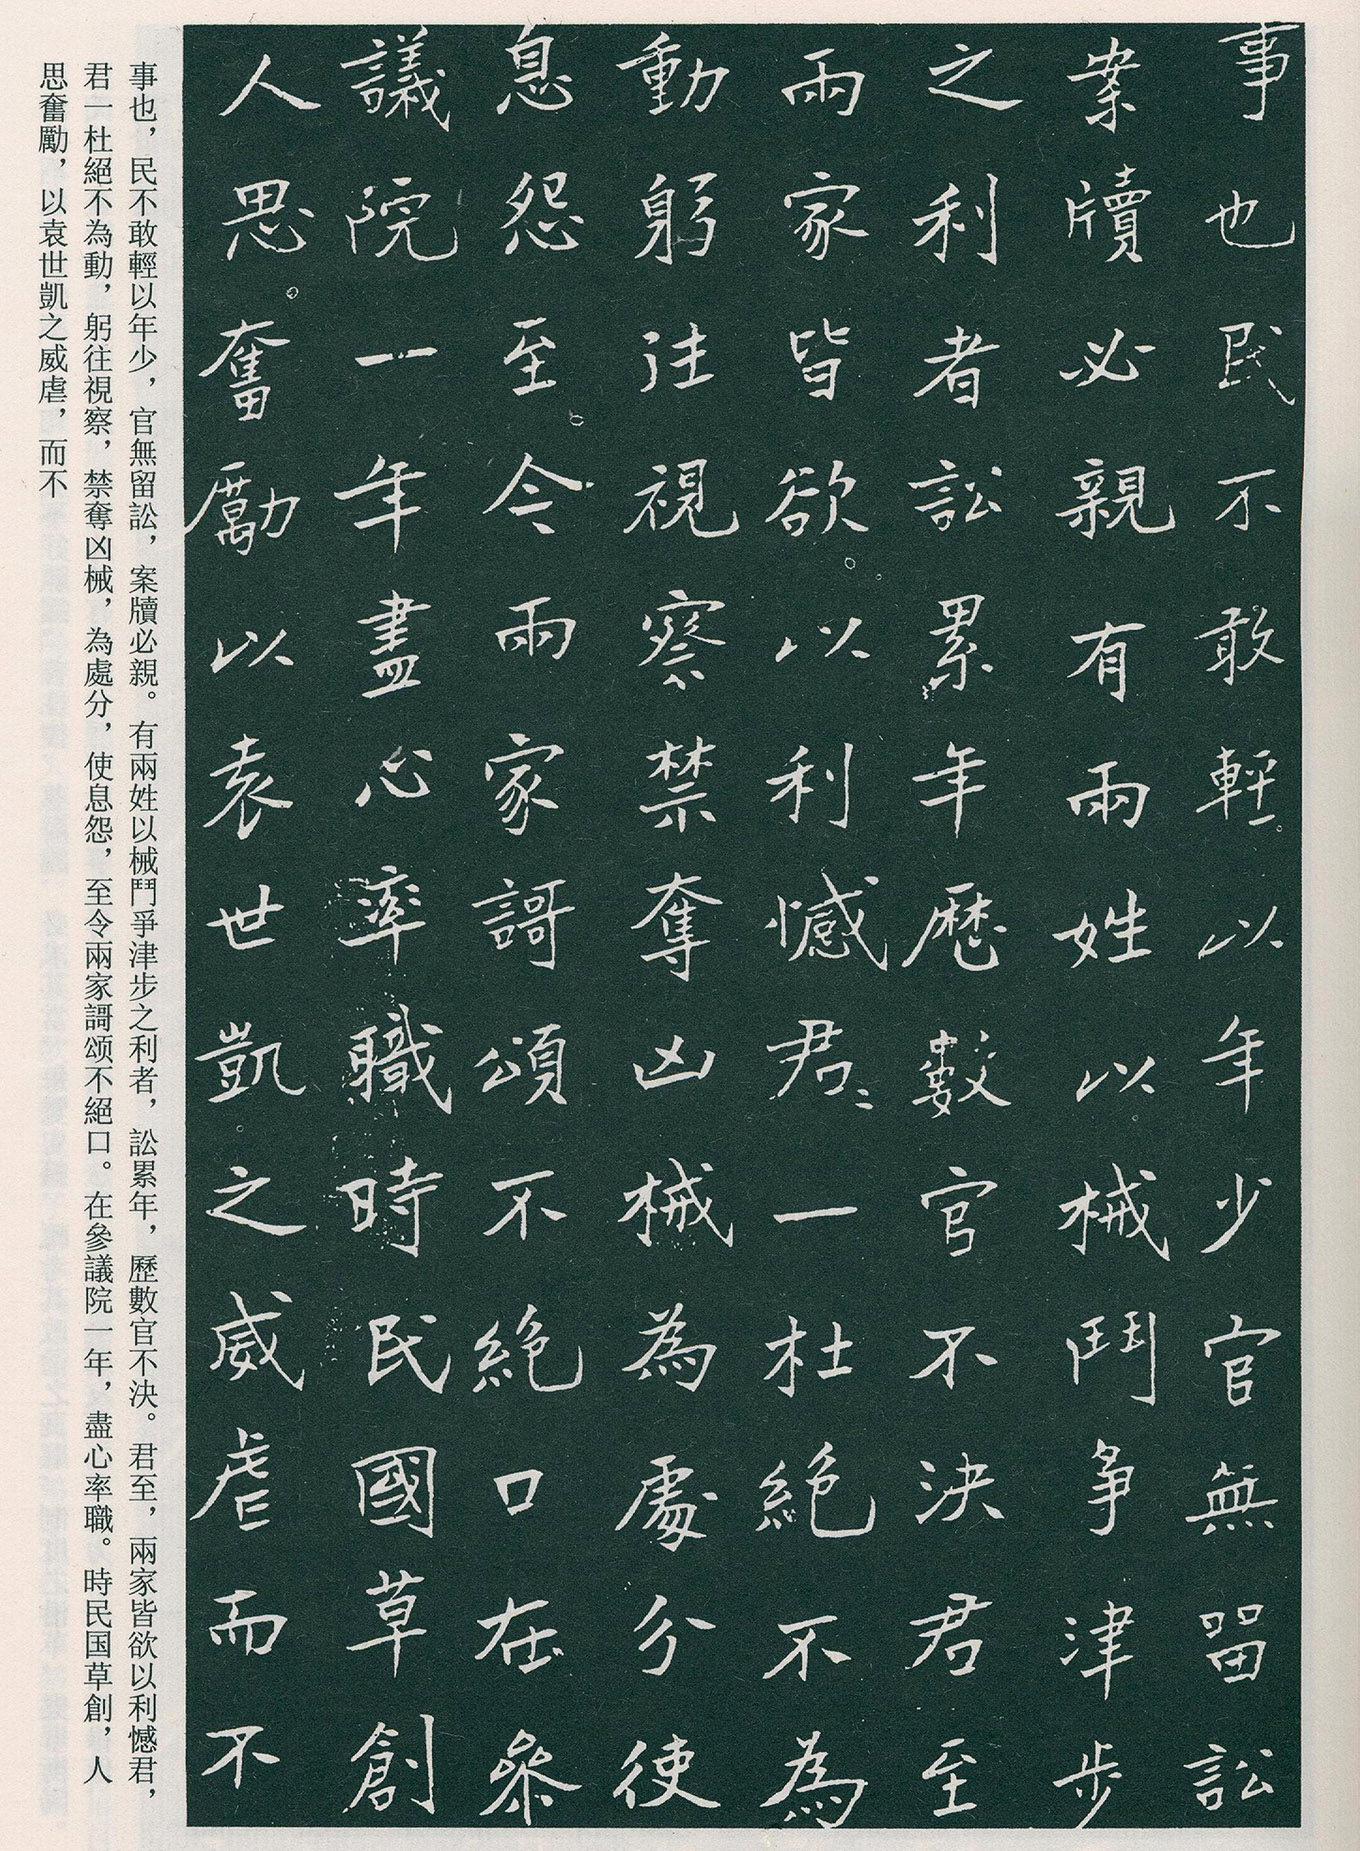 事也民不敢輕以年少官無留訟
案牘必親有兩姓以械鬥爭津步
之利者訟累年歷數官不決君至
兩家皆欲以利憾君〻一杜絕不為
動躬往視察禁奪凶械為處分使
息怨至今兩家謌頌不絕口在參
議院一年盡心率職時民國草創
人思奮勵以袁世凱之威虐而不
事也，民不敢輕以年少，官無留訟，案牘必親。有兩姓以械鬥爭津步之利者，訟累年，歷數官不決。君至，兩家皆欲以利憾君，
君一杜絕不為動，躬往視察，禁奪凶械，為處分，使息怨，至令兩家謌颂不絕口。在參議院一年，盡心率職。時民国草創，人
思奮勵，以袁世凱之威虐，而不